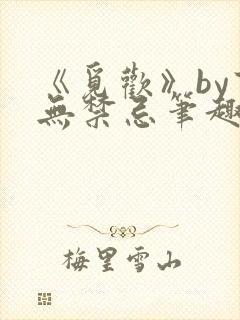 《覓歡》by
無禁忌筆趣
梅里雪山